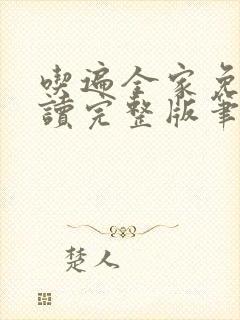 喫遍全家免
讀完整版筆
楚人